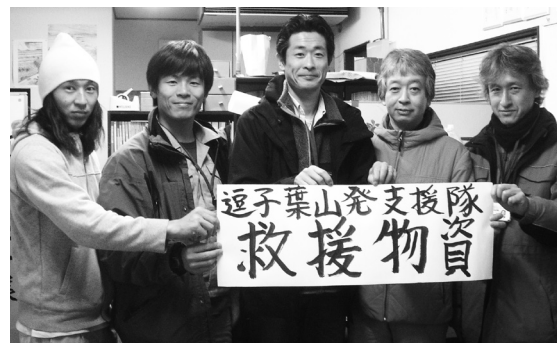 逗子葉山発支援隊
救援物資